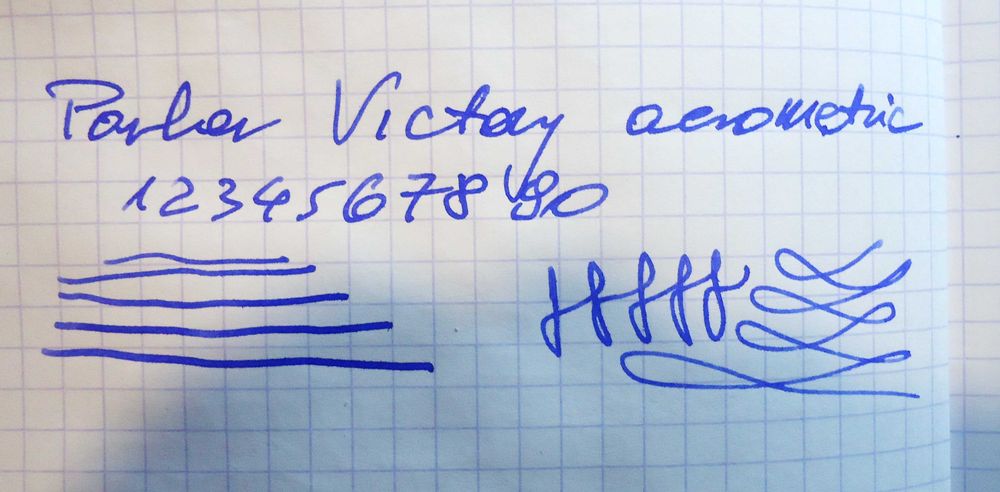 Parker Victory aerometric
1234567890